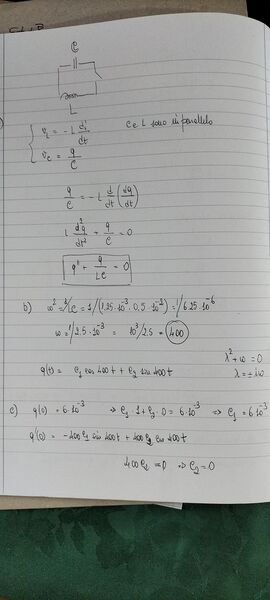 C
L
)
{ V_L = -L di/dt
C e L sono in parallelo
V_C = q/C
q/C = -L d/dt (dq/dt)
L d²q/dt² + q/C = 0
q'' + q/LC = 0
b) ω² = 1/LC = 1/(1.25·10⁻³·0.5·10⁻²) = 1/6.25·10⁻⁶
ω = 1/2.5·10⁻³ = 10³/2.5 = 400
λ² + ω = 0
λ = ± iω
q(t) = c₁ cos 400t + c₂ sin 400t
c) q(0) = 6·10⁻³ ⇒ c₁·1 + c₂·0 = 6·10⁻³ ⇒ c₁ = 6·10⁻³
q'(0) = -400c₁ sin 400t + 400c₂ cos 400t
400c₂ = 0 ⇒ c₂ = 0